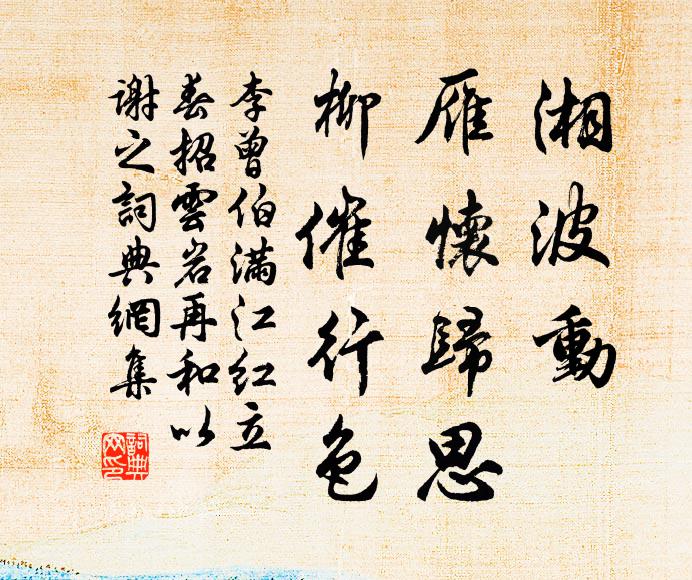 湘波動
雁懷歸思
柳催行色
李曾伯滿江紅立
春招雲岩再和以
謝之詞典網集
詞典網印